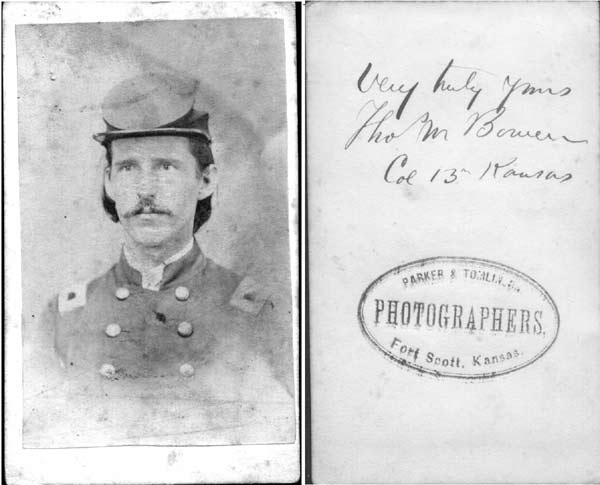 Very truly yours
Tho M Bowen
Col 13th Kansas
PARKER & TOMLINSON
PHOTOGRAPHERS.
Fort Scott, Kansas.